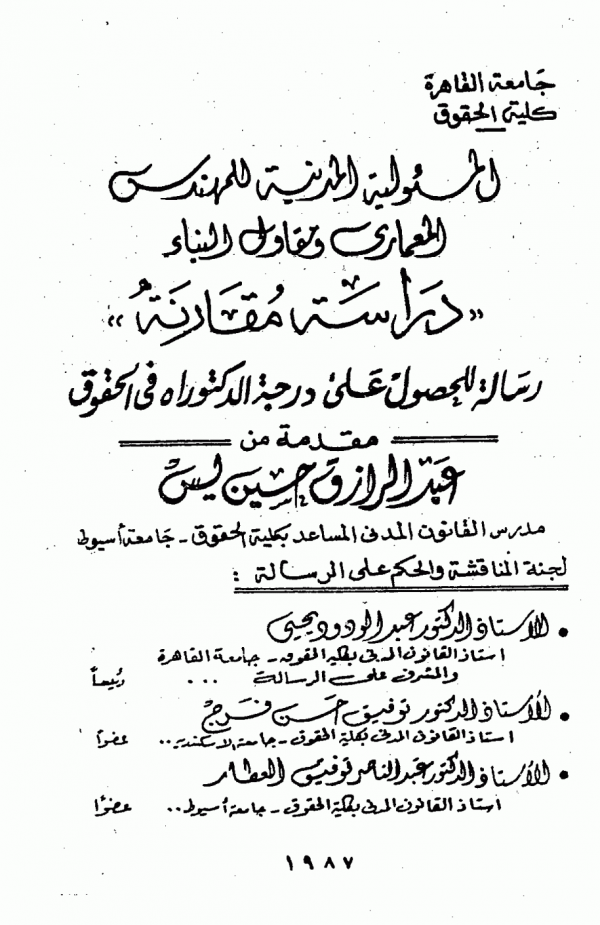 جامعة القاهرة
كلية الحقوق
المسئولية المدنية للمهندس
المعمارى ومقاول البناء
«دراسة مُقارنةُ»
رسالة للحصول على درجة الدكتوراه فى الحقوق
مقدمة من
عبد الرازق حسين يس
مدرس القانون المدنى المساعد بكلية الحقوق - جامعة أسيوط
لجنة المناقشة والحكم على الرسالة :
• الأستاذ الدكتور عبد الودود يحيى
استاذ القانون المدنى بكلية الحقوق - جامعة القاهرة
والمشرف على الرسالة ... رئيساً
• الأستاذ الدكتور توفيق حسن فرج
استاذ القانون المدنى بكلية الحقوق - جامعة الاسكندرية .. عضواً
• الأستاذ الدكتور عبد الناصر توفيق العطار
استاذ القانون المدنى بكلية الحقوق - جامعة أسيوط .. عضوًا
١٩٨٧